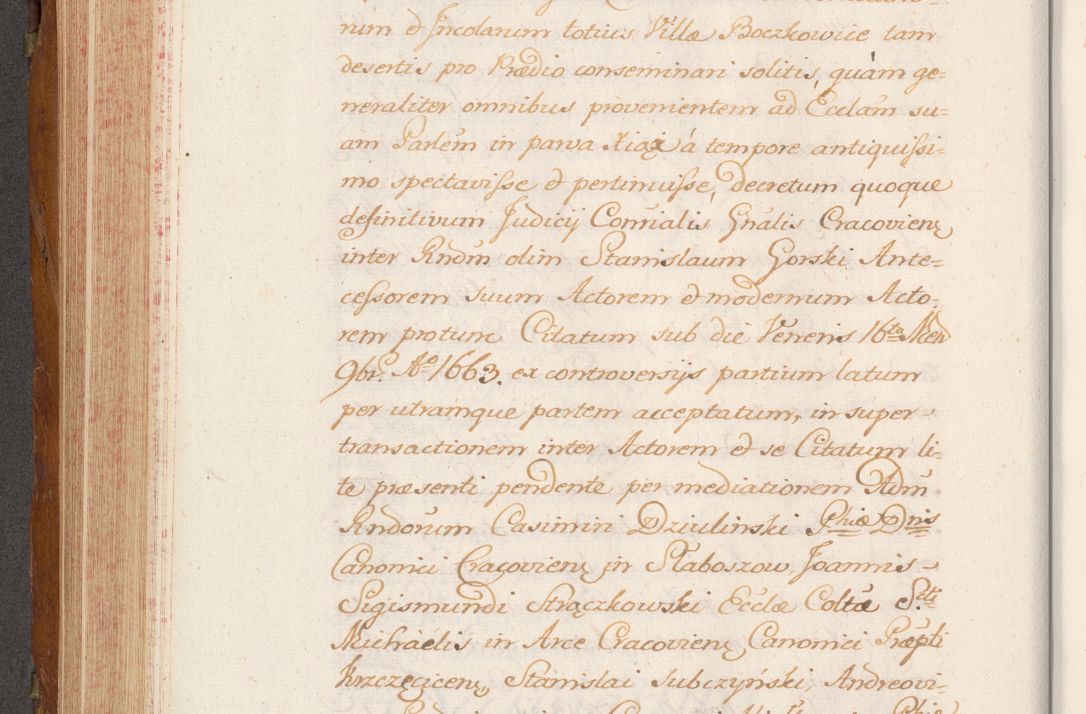 rum & Incolarum totius Villæ Boczkowice tam
desertis pro Prædio conseminari solitis, quàm ge=
neraliter omnibus provenientem ad Ecclam su=
am Parlem in parva Xiąż à tempore antiquissi=
mo spectavisse & pertinuisse, decretum quoque
definitivum Judicij Consialis Gnalis Cracovien̄
inter Rndum olim Stanislaum Gorski Ante=
cessorem suum Actorem & modernum Acto=
rem pro tunc Citatum sub die Veneris 16ta Men
9br. Ao 1663. ex controversijs partium latum
per utramque partem acceptatum, in super=
transactionem inter Actorem & se Citatum li=
te præsenti pendente per mediationem Adm
Rndorum Casimiri Dziulinski Phiæ Dris
Canonici Cracovien̄ in Słaboszow, Joannis=
Sigismundi Strączkowski Ecclæ Coltæ S.cti
Michaelis in Arce Cracovien̄ Canonici Præpti
Krzczęcicen̄, Stanislai Subczyński, Andreovi=